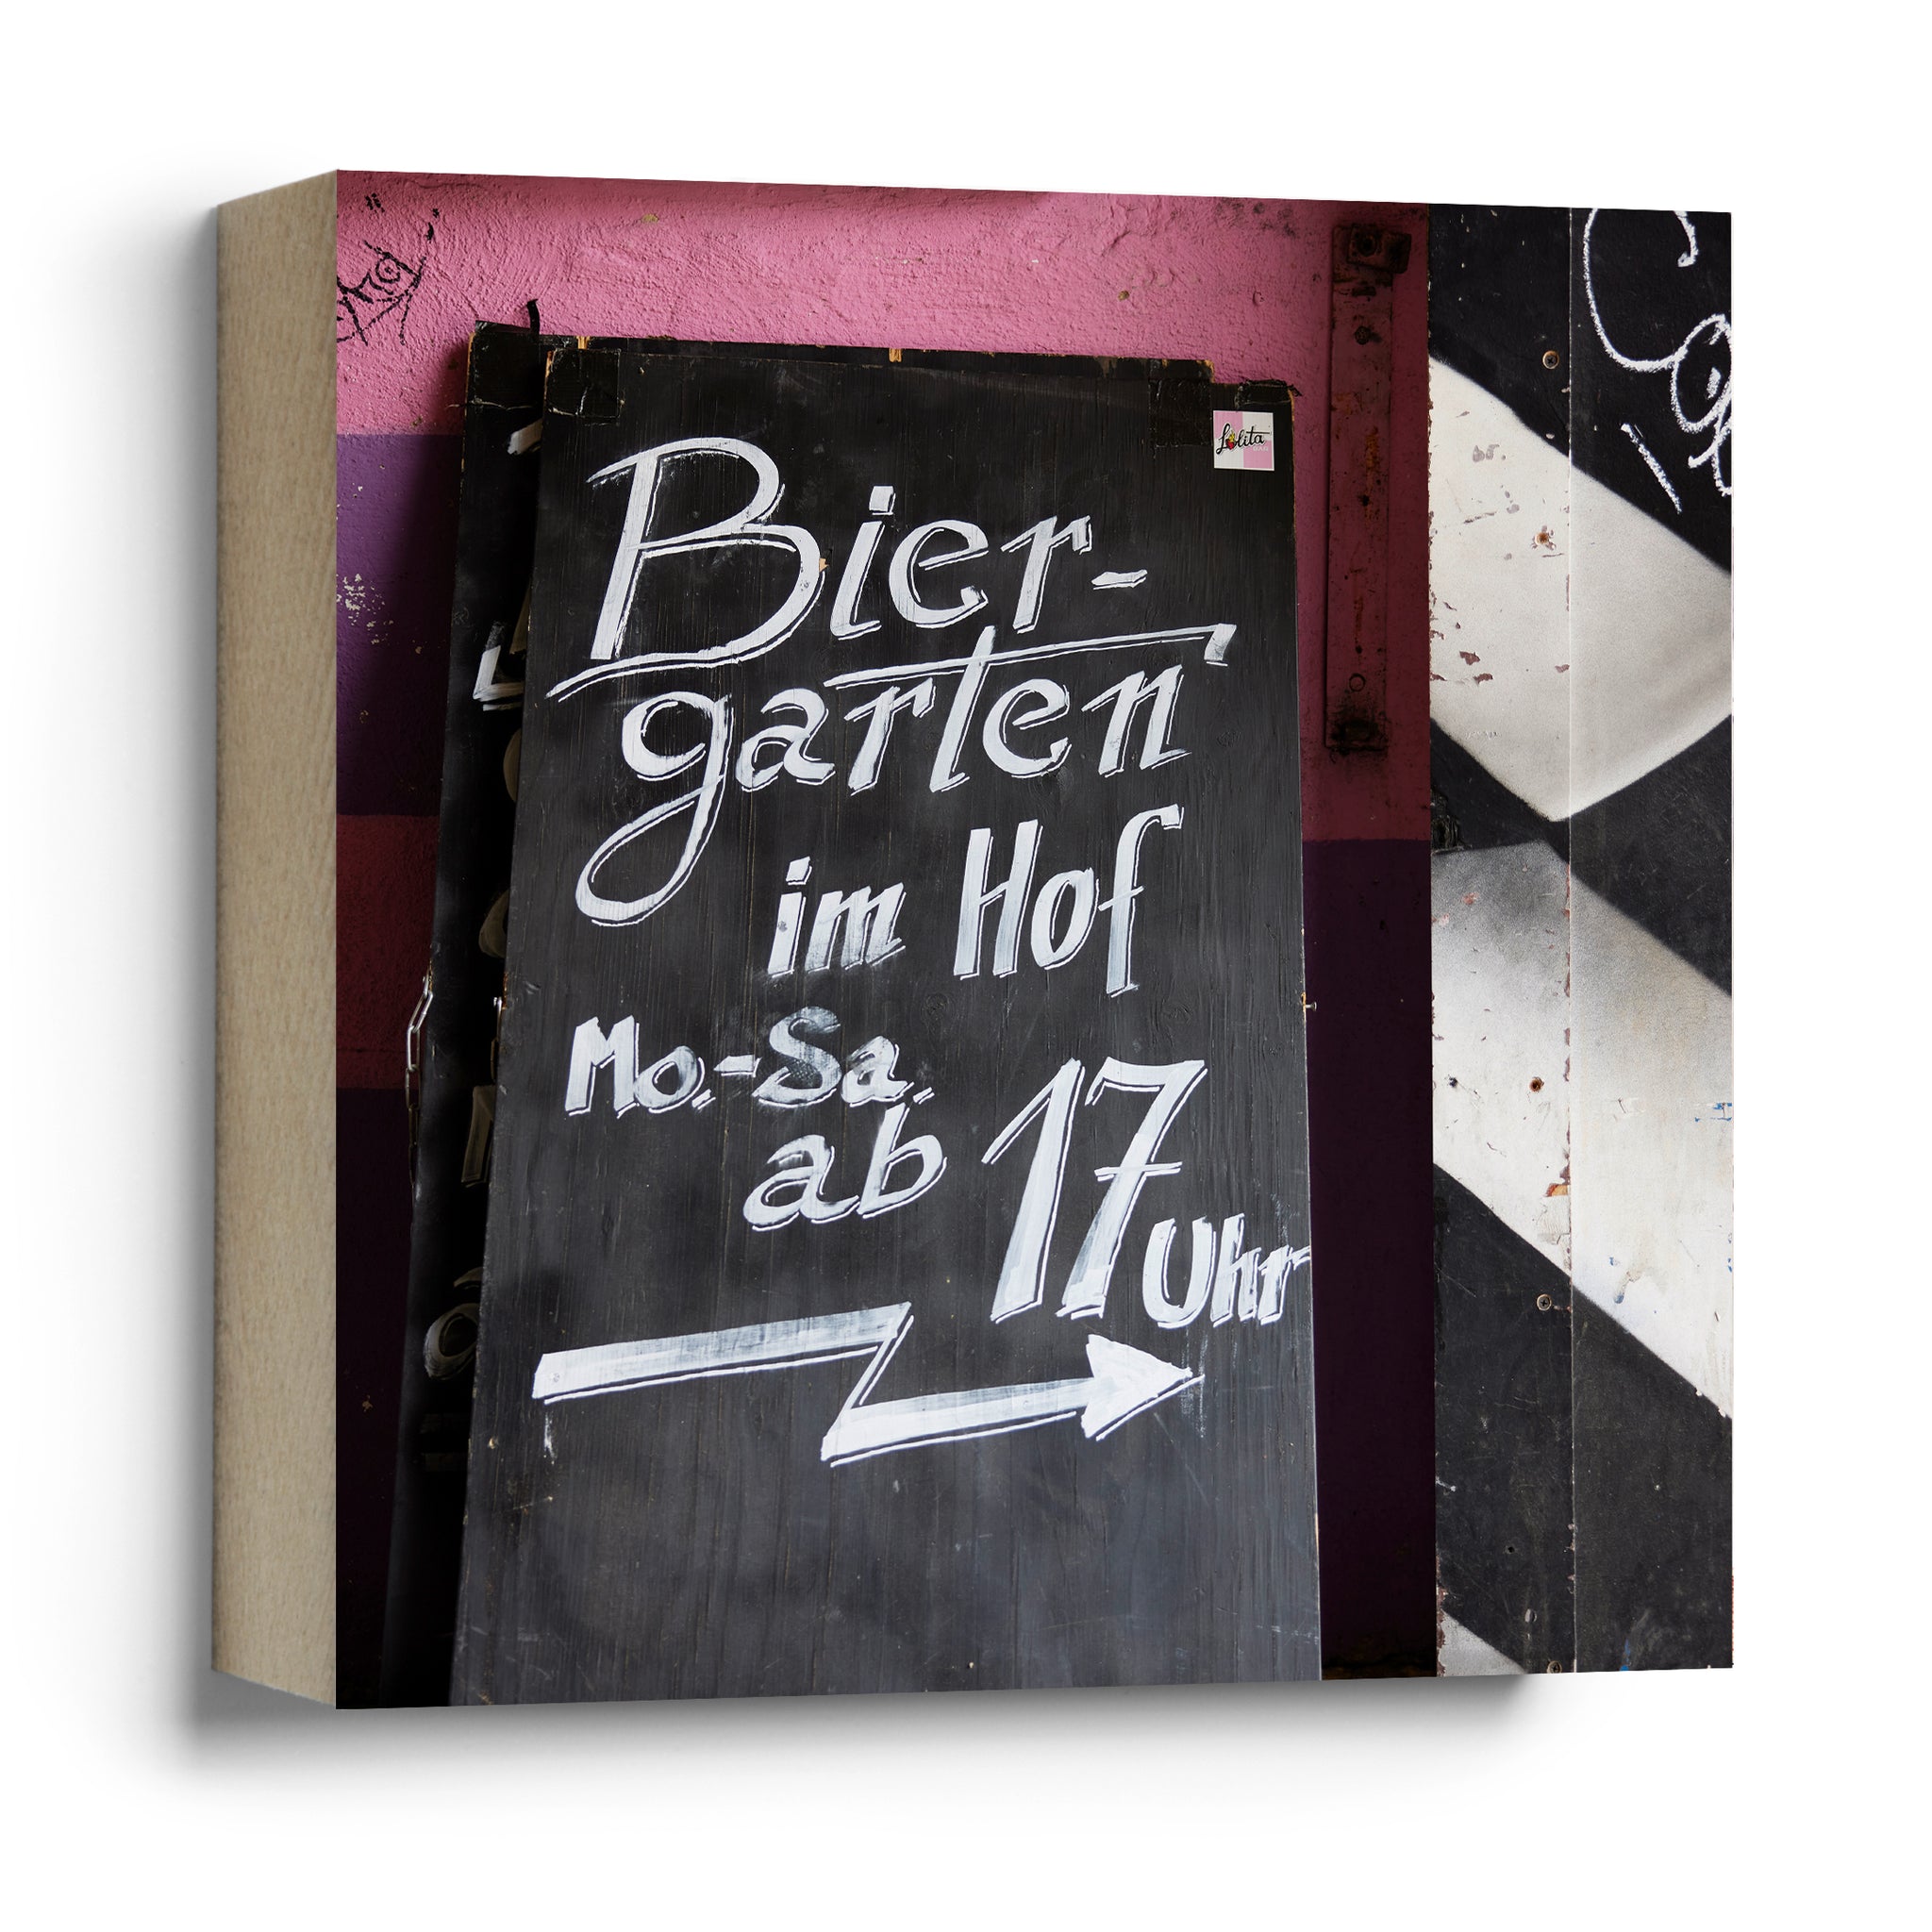 Lolita
Bier-
garten
im Hof
Mo.-Sa.
ab 17 Uhr